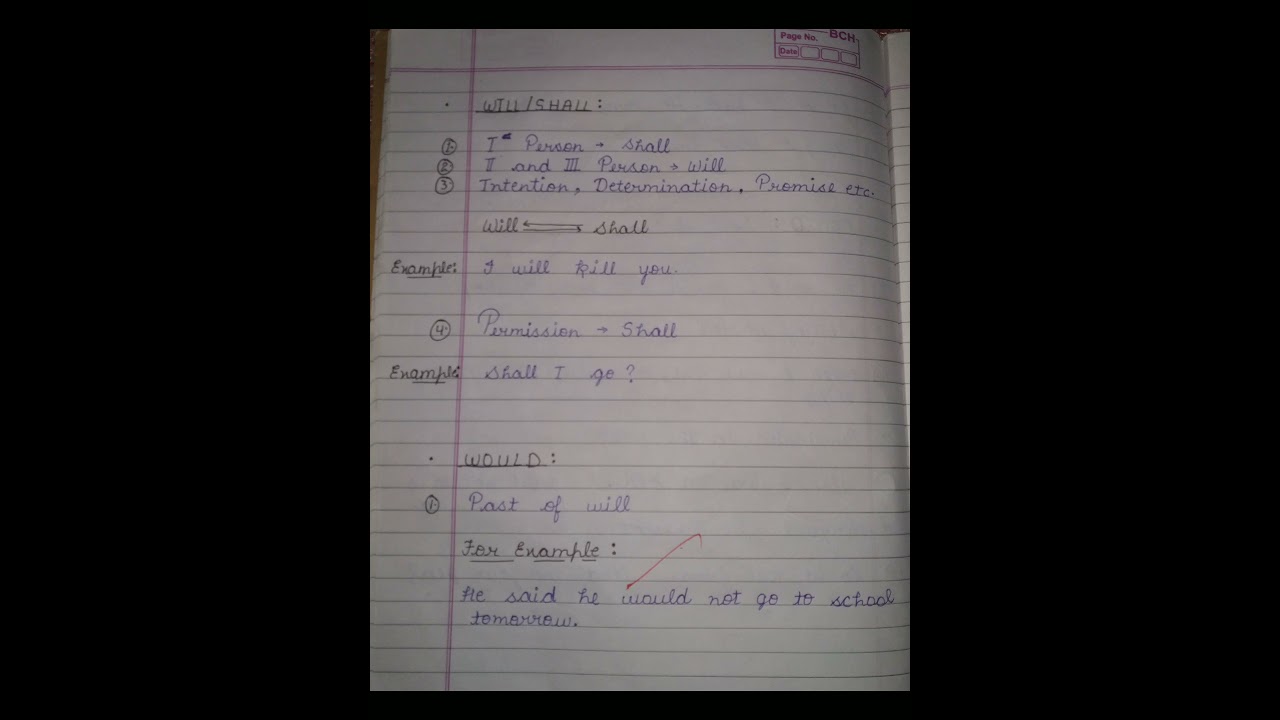 Page No. BCH
Date
• WILL/SHALL:
① I Person → shall
② II and III Person → Will
③ Intention, Determination, Promise etc.
Will ⇌ shall
Example: I will kill you.
④ Permission → Shall
Example: shall I go?
• WOULD:
① Past of will
For Example:
He said he would not go to school
tomorrow.